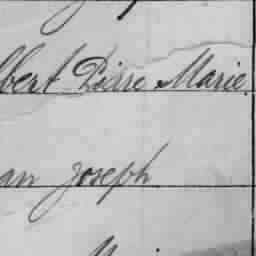 lbert Pierre Marie
an Joseph